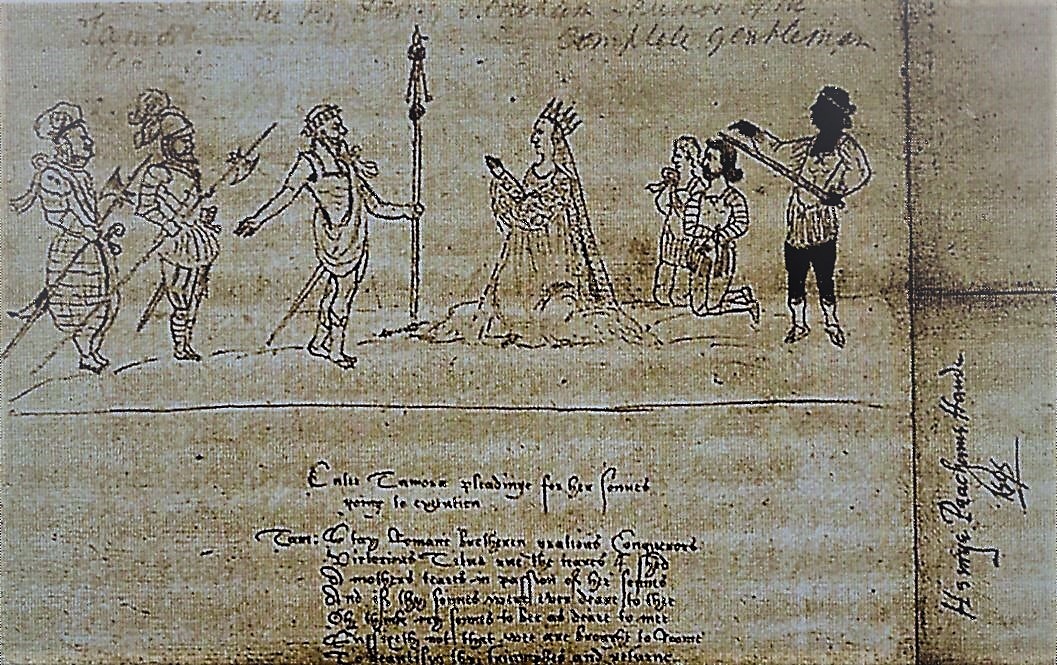 by Henry Peacham Author of the
complete gentleman
Enter Tamora pleadinge for her sonnes
going to execution
Tam: Stay Romane bretheren gratious Conquerors
Victorious Titus rue the teares I shed
A mothers teares in passion of her sonnes
And if thy sonnes were ever deare to thee
Oh thinke my sonnes to bee as deare to mee
Suffizeth not that wee are brought to Roome
To beautify thy triumphes and returne
Henrye Peachams Hande
1595